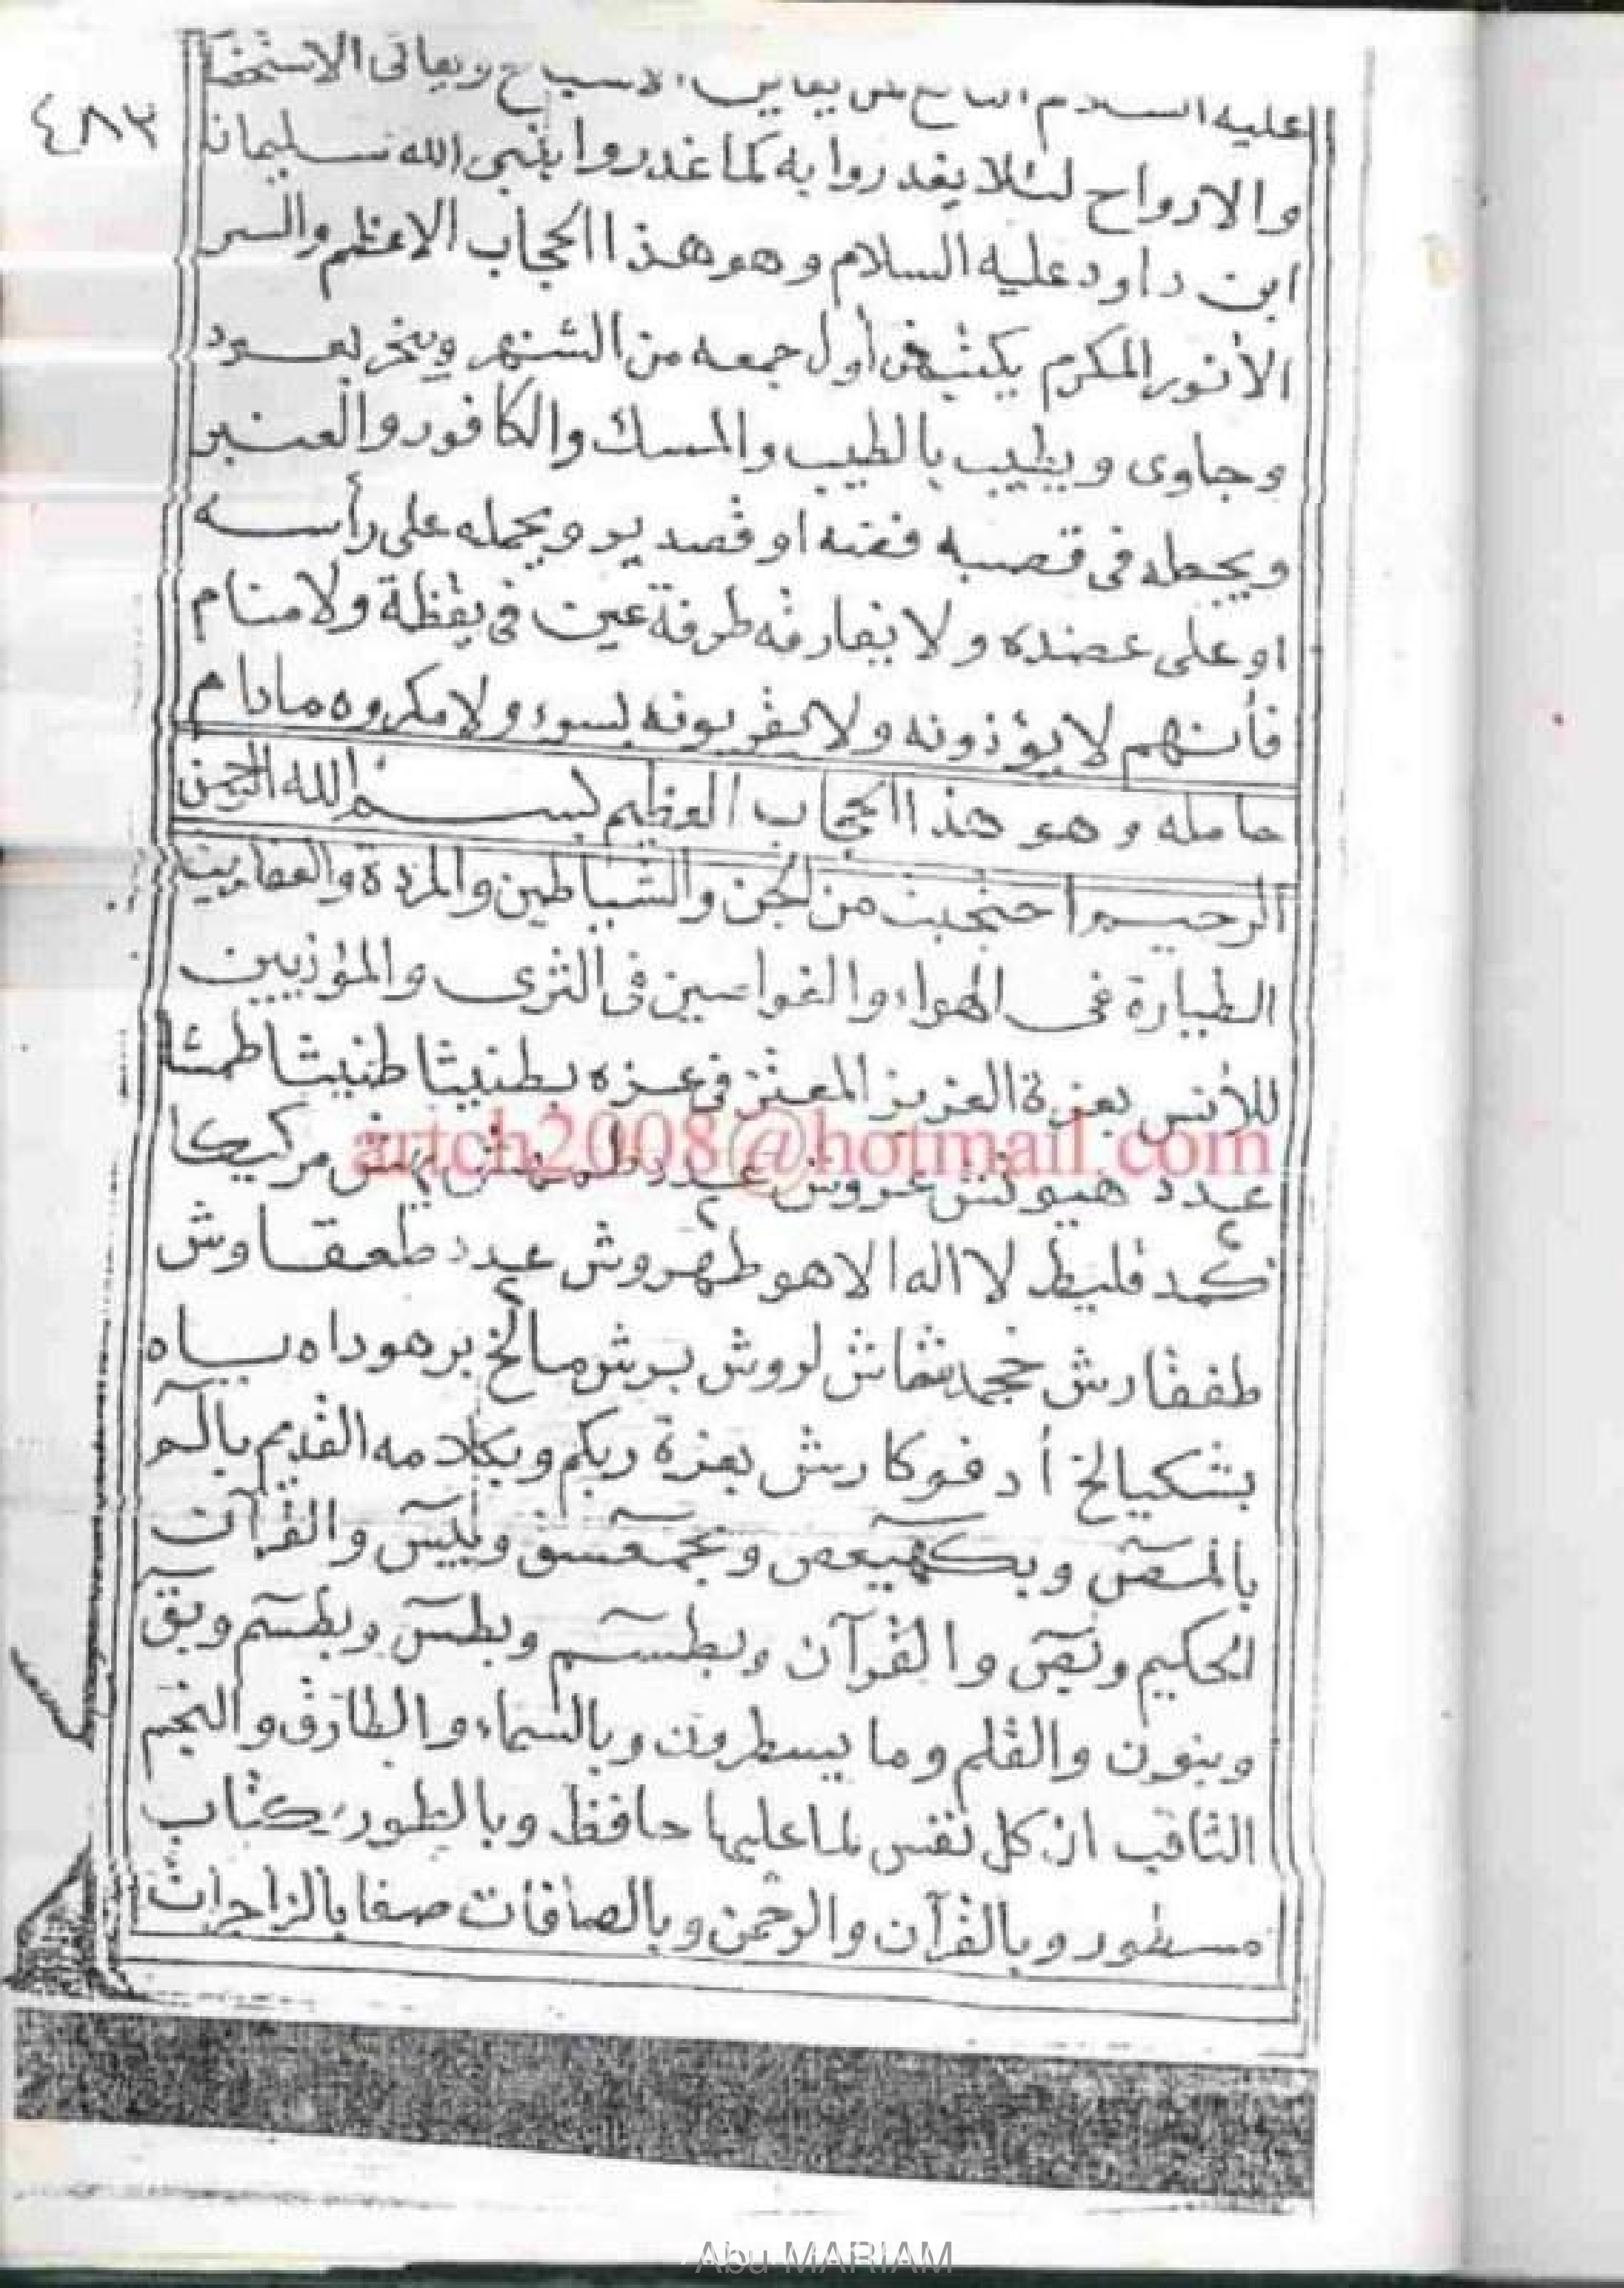 ٤٨٣
عليه السلام
والارواح لئلا يغدروا به كما غدروا بنبى الله سليمان
ابن داود عليه السلام وهو هذا الحجاب الاعظم والسر
الأنور المكرم يكتب فى أول جمعه من الشهر ويبخر بعود
وجاوى ويطيب بالطيب والمسك والكافور والعنبر
ويجعله فى قصبه فضه او قصدير ويحمله على رأسه
او على عضده ولا يفارقه طرفة عين فى يقظة ولا منام
فأنهم لا يؤذونه ولا يقربونه بسوء ولا مكروه مادام
حامله وهو هذا الحجاب العظيم بسم الله الرحمن
الرحيم احتجبت من الجن والشياطين والمردة والعفاريت
الطيارة فى الهواء والغواصين فى الثرى والمؤذيين
للأنس بعزة العزيز المعتز فى عزه بطنيثا طنيثا طمثا
artch2008@hotmail.com
عدد هيوش مركيكا
كمد فليط لا اله الا هو طهروش عدد طعقاوش
طفقارش حجمد شماش لروش برش مالخ برهوداه بياه
بشكيالخ أدفوكارش بعزة ربكم وبكلامه القديم بآلم
بالمص وبكهيعص وبحمعسق وبيس والقرآن
الحكيم وبص والقرآن وبطسم وبطس وبطسم وبق
وبنون والقلم وما يسطرون وبالسماء والطارق والنجم
الثاقب ان كل نفس لما عليها حافظ وبالطور وكتاب
مسطور وبالقرآن والرحمن وبالصافات صفا بالزاجرات
Abu MARIAM